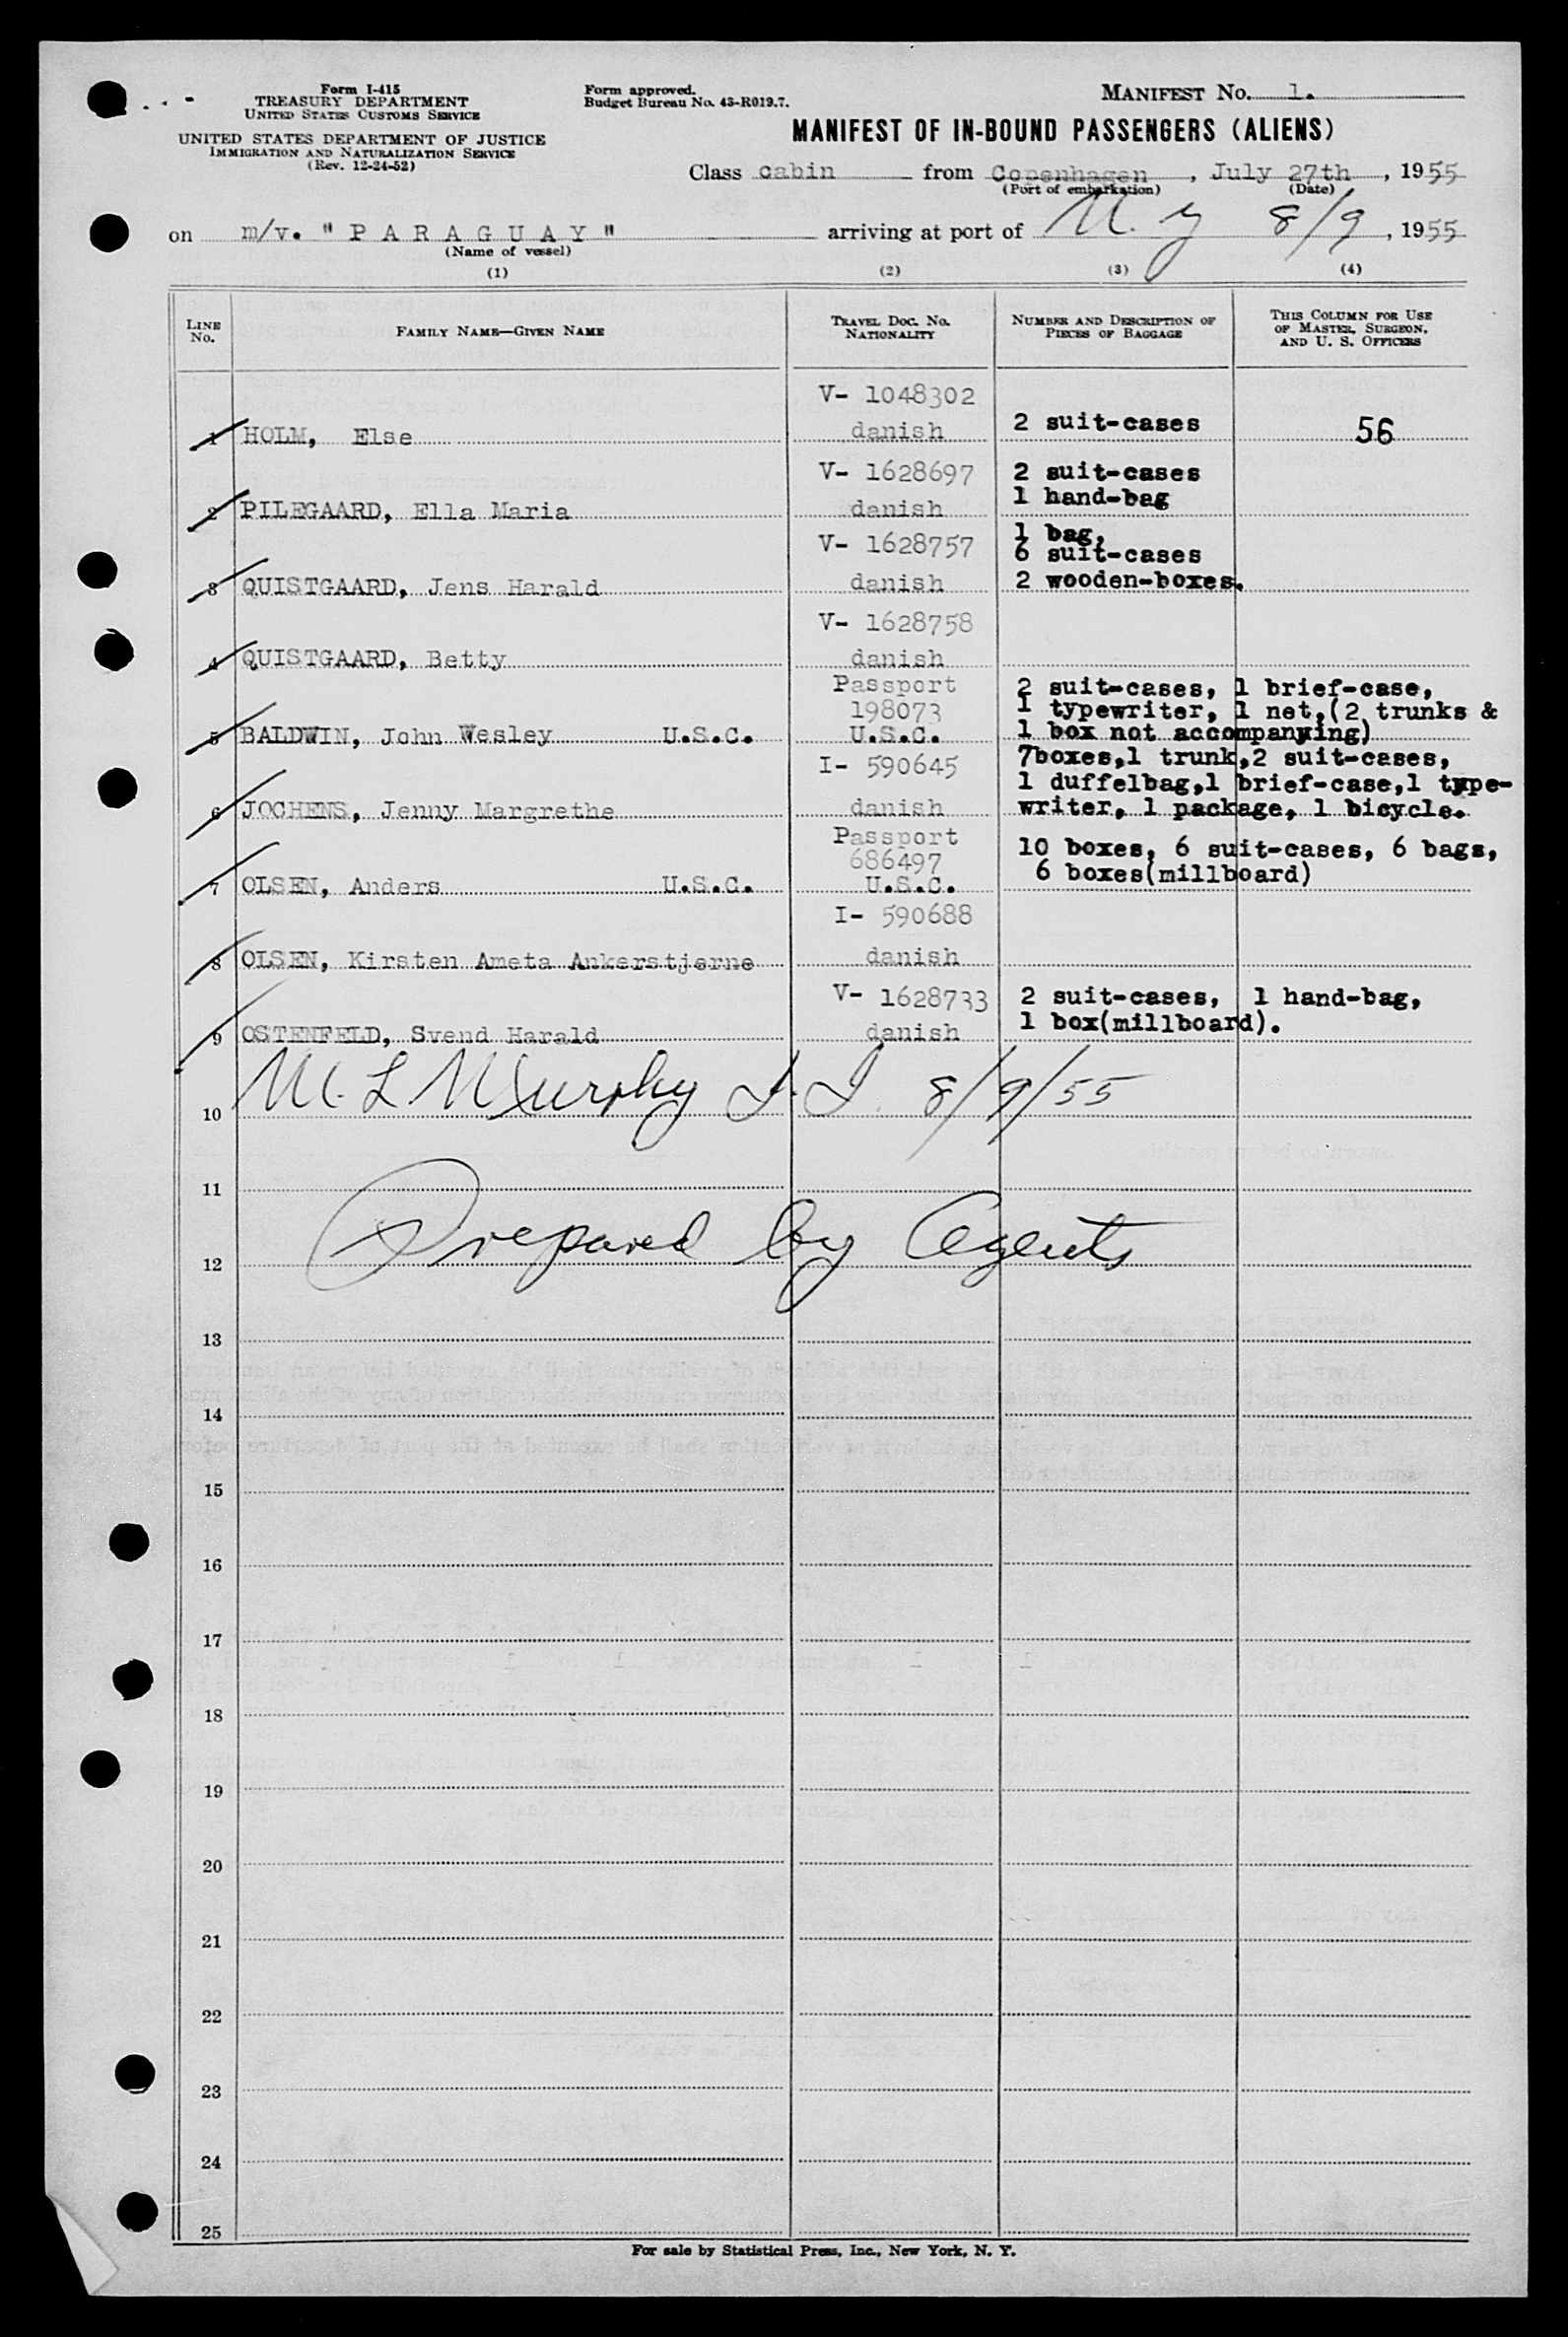 Form I-415
TREASURY DEPARTMENT
UNITED STATES CUSTOMS SERVICE
UNITED STATES DEPARTMENT OF JUSTICE
IMMIGRATION AND NATURALIZATION SERVICE
(Rev. 12-24-52)
Form approved.
Budget Bureau No. 43-R019.7.
MANIFEST No. 1.
MANIFEST OF IN-BOUND PASSENGERS (ALIENS)
Class cabin from Copenhagen, July 27th, 1955
(Port of embarkation) (Date)
on m/v. "PARAGUAY" arriving at port of N. Y 8/9, 1955
(Name of vessel)
(1) (2) (3) (4)
LINE No. FAMILY NAME—GIVEN NAME TRAVEL DOC. No. NATIONALITY NUMBER AND DESCRIPTION OF PIECES OF BAGGAGE THIS COLUMN FOR USE OF MASTER, SURGEON, AND U. S. OFFICERS
V- 1048302
1 HOLM, Else danish 2 suit-cases 56
V- 1628697 2 suit-cases
2 PILEGAARD, Ella Maria danish 1 hand-bag
1 bag,
V- 1628757 6 suit-cases
3 QUISTGAARD, Jens Harald danish 2 wooden-boxes.
V- 1628758
4 QUISTGAARD, Betty danish
Passport 2 suit-cases, 1 brief-case,
198073 1 typewriter, 1 net,(2 trunks &
5 BALDWIN, John Wesley U.S.C. U.S.C. 1 box not accompanying)
I- 590645 7boxes,1 trunk,2 suit-cases,
1 duffelbag,1 brief-case,1 type-
6 JOCHENS, Jenny Margrethe danish writer, 1 package, 1 bicycle.
Passport
686497 10 boxes, 6 suit-cases, 6 bags,
7 OLSEN, Anders U.S.C. U.S.C. 6 boxes(millboard)
I- 590688
8 OLSEN, Kirsten Ameta Ankerstjerne danish
V- 1628733 2 suit-cases, 1 hand-bag,
9 OSTENFELD, Svend Harald danish 1 box(millboard).
10 M. L Murphy I. I. 8/9/55
11
12 Prepared by Agents
13
14
15
16
17
18
19
20
21
22
23
24
25
For sale by Statistical Press, Inc., New York, N. Y.